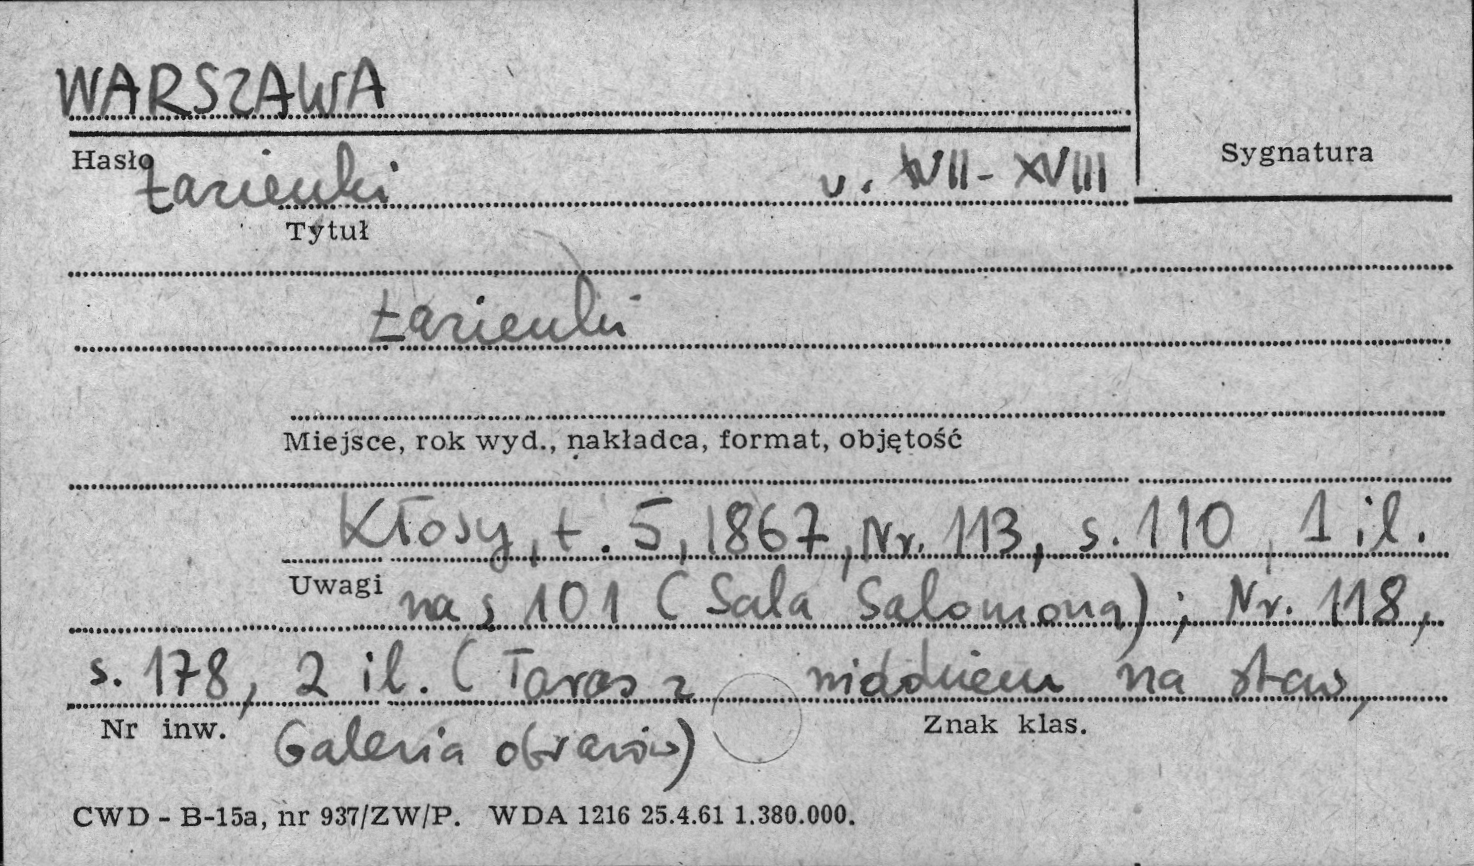 WARSZAWA
Hasło
Sygnatura
Łazienki w. XVII - XVIII
Tytuł
Łazienki
Miejsce, rok wyd., nakładca, format, objętość
Kłosy, t. 5, 1867, Nr. 113, s. 110, 1 il.
Uwagi na s 101 (Sala Salomona); Nr. 118,
s. 178, 2 il. (Taras z widokiem na staw,
Nr inw. Znak klas.
Galeria obrazów)
CWD - B-15a, nr 937/ZW/P. WDA 1216 25.4.61 1.380.000.